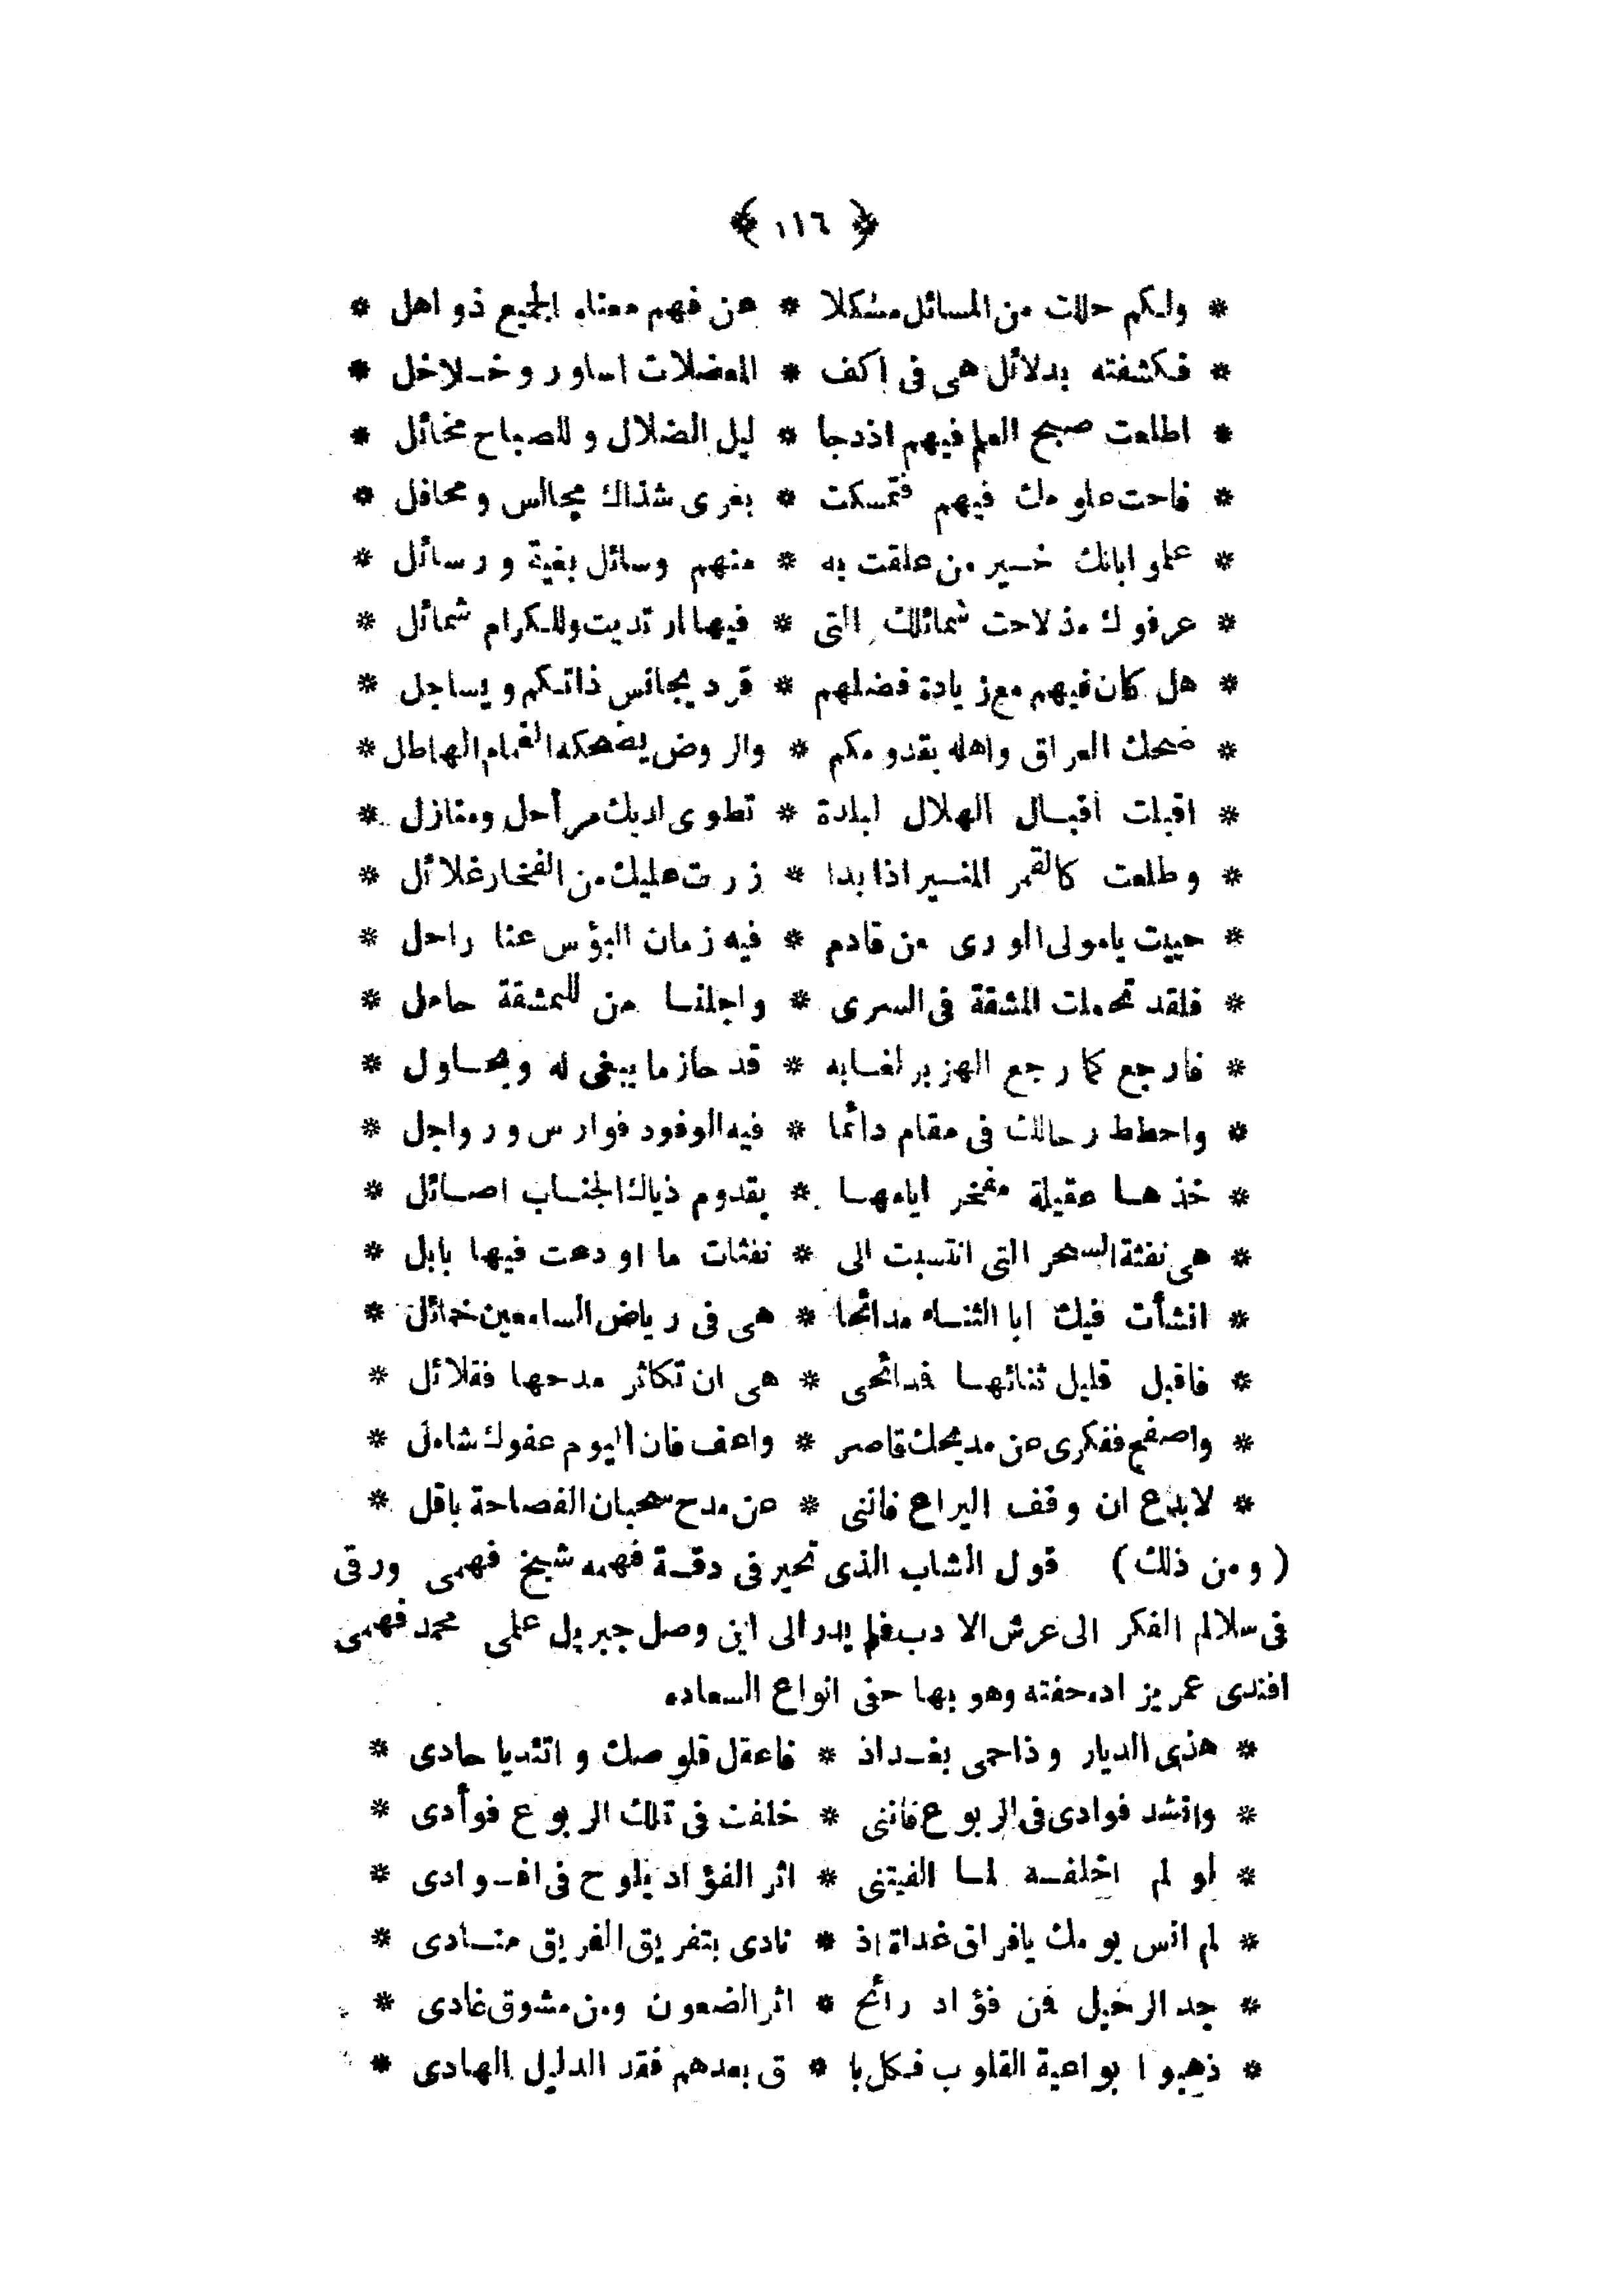 ﴿ ١١٦ ﴾
* ولكم حللت من المسائل مشكلا * عن فهم معناه الجميع ذواهل *
* فكشفته بدلائل هى فى اكف * المعضلات اساور وخلاخل *
* اطلعت صبح العلم فيهم اذدجا * ليل الضلال وللصباح مخائل *
* فاحت علومك فيهم فتمسكت * بغرى شذاك مجالس ومحافل *
* علموا بانك خير من علقت به * منهم وسائل بغية ورسائل *
* عرفوك مذ لاحت شمائلك التى * فيها ارتديت وللكرام شمائل *
* هل كان فيهم مع زيادة فضلهم * قرد يجانس ذاتكم ويساجل *
* ضحك العراق واهله بقدومكم * والروض يضحكه الغمام الهاطل *
* اقبلت اقبال الهلال لبلدة * تطوى لديك مراحل ومنازل *
* وطلعت كالقمر المنير اذا بدا * زرت عليك من الفخار غلائل *
* حييت يامولى الورى من قادم * فيه زمان البؤس عنا راحل *
* فلقد تحملت المشقة فى السرى * واجلنا من للمشقة حامل *
* فارجع كما رجع الهزبر لغابه * قد حاز ما يبغى له ويحاول *
* واحطط رحالك فى مقام دائما * فيه الوفود فوارس ورواجل *
* خذها عقيلة مفخر ايامها * بقدوم ذياك الجناب اصائل *
* هى نفثة السحر التى انتسبت الى * نفثات ما اودعت فيها بابل *
* انشأت فيك ابا الثناء مدائحا * هى فى رياض السامعين خمائل *
* فاقبل قليل ثنائها فمدائحى * هى ان تكاثر مدحها فقلائل *
* واصفح ففكرى عن مديحك قاصر * واعف فان اليوم عفوك شامل *
* لابدع ان وقف اليراع فاننى * عن مدح سحبان الفصاحة باقل *
( ومن ذلك ) قول الشاب الذى تحير فى دقة فهمه شيخ فهمى ورقى
فى سلالم الفكر الى عرش الادب فلم يدر الى اين وصل جبريل علمى محمد فهمى
افندى عمريزاده حفته وهو بها حفى انواع السعاده
* هذى الديار وذا حمى بغداذ * فاعقل قلوصك واتئد يا حادى *
* وانشد فوادى فى الربوع فاننى * خلفت فى تلك الربوع فوأدى *
* لو لم اخلفه لما الفيتنى * اثر الفؤاد يلوح فى افوادى *
* لم انس يومك يافراق غداة اذ * نادى بتفريق الفريق منادى *
* جد الرحيل فمن فؤاد رائح * اثر الضعون ومن مشوق غادى *
* ذهبوا بواعية القلوب فكل با * ق بعدهم فقد الدليل الهادى *